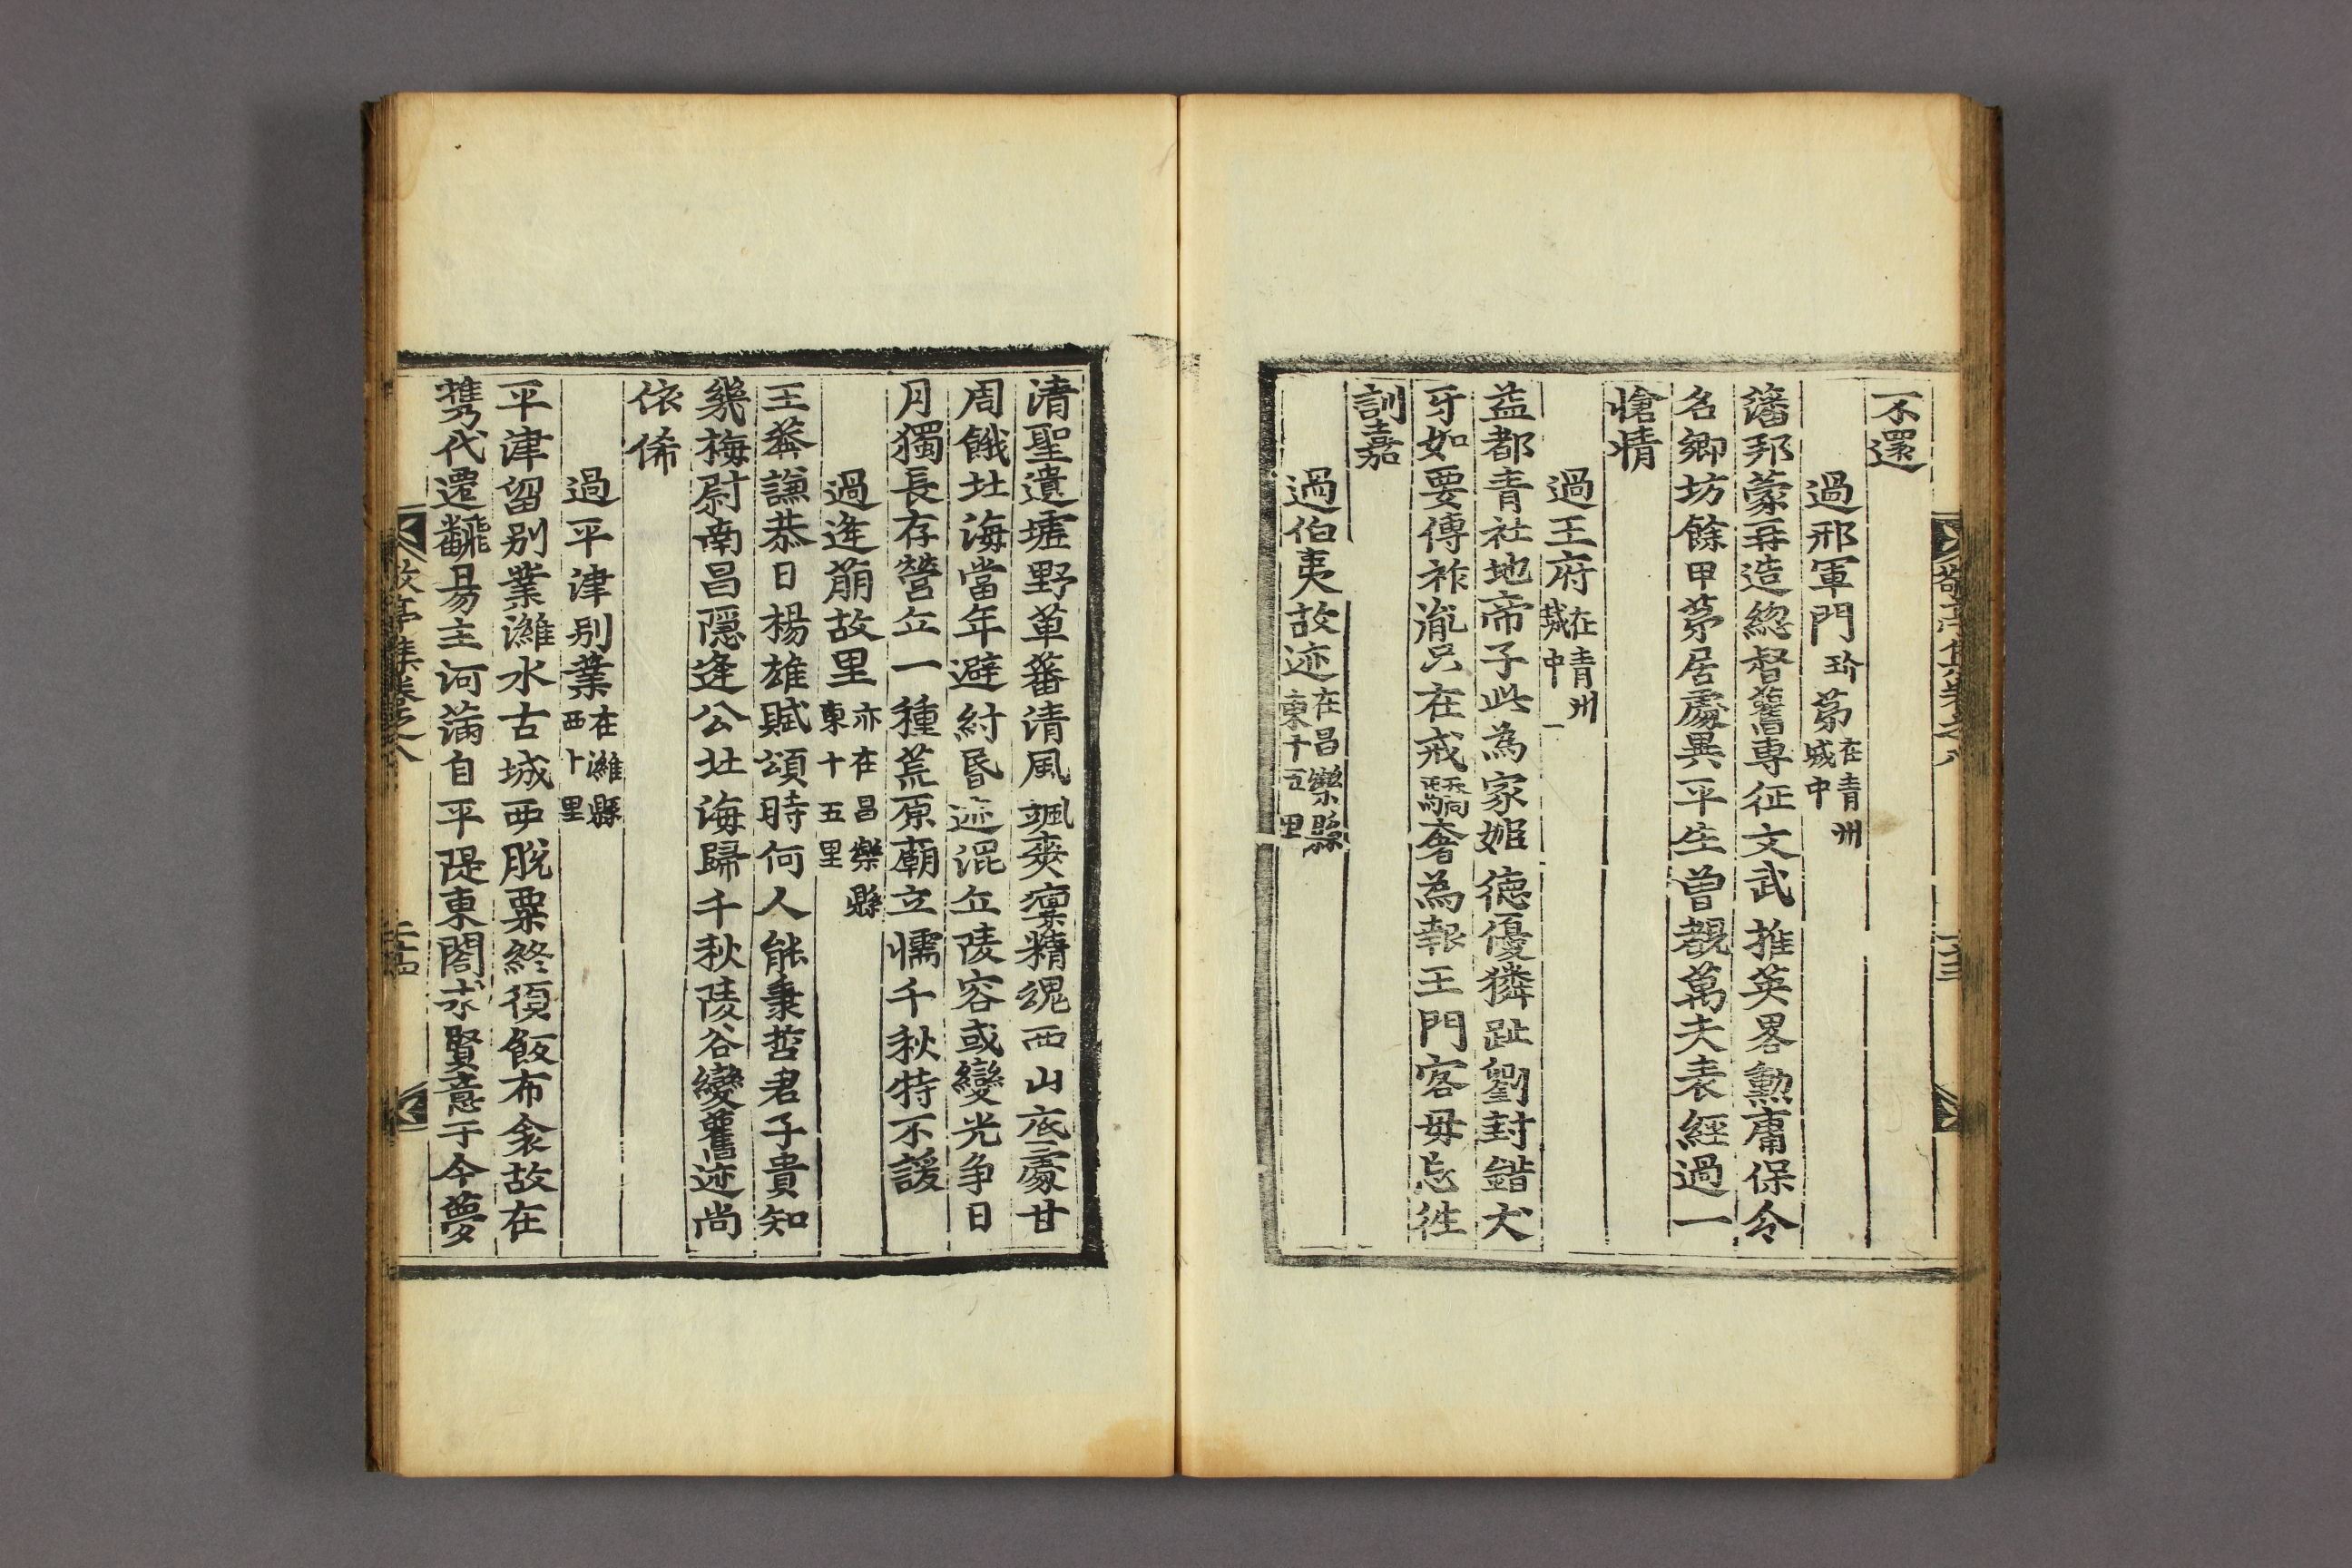 不還
過邢軍門玠茅在青州城中
藩邦蒙再造緫督舊専征文武推英畧勳庸保令
名卿坊餘甲茅居處異平生曾覩萬夫表經過一
愴情
過王府在青州城中一
益都青社地帝子此為家姬德優獜趾劉封錯犬
牙如要傳祚胤只在戒驕奢為報王門客毋忘徃
訓嘉
過伯夷故迹在昌樂縣東十五里
清聖遺墟野草蕃清風颯爽稟精魂西山底處甘
周餓北海當年避紂昏迹混丘陵容或變光争日
月獨長存營丘一種荒原廟立懦千秋特不諼
過逄萠故里亦在昌樂縣東十五里
王莾謙恭日楊雄賦頌時何人能秉哲君子貴知
幾梅尉南昌隱逄公北海歸千秋陵谷變舊迹尚
依俙
過平津別業在濰縣西十里
平津留别業濰水古城西脫粟終須飯布衾故在
携代遷飜易主河滿自平隄東閤求賢意于今夢
敬亭集卷之八